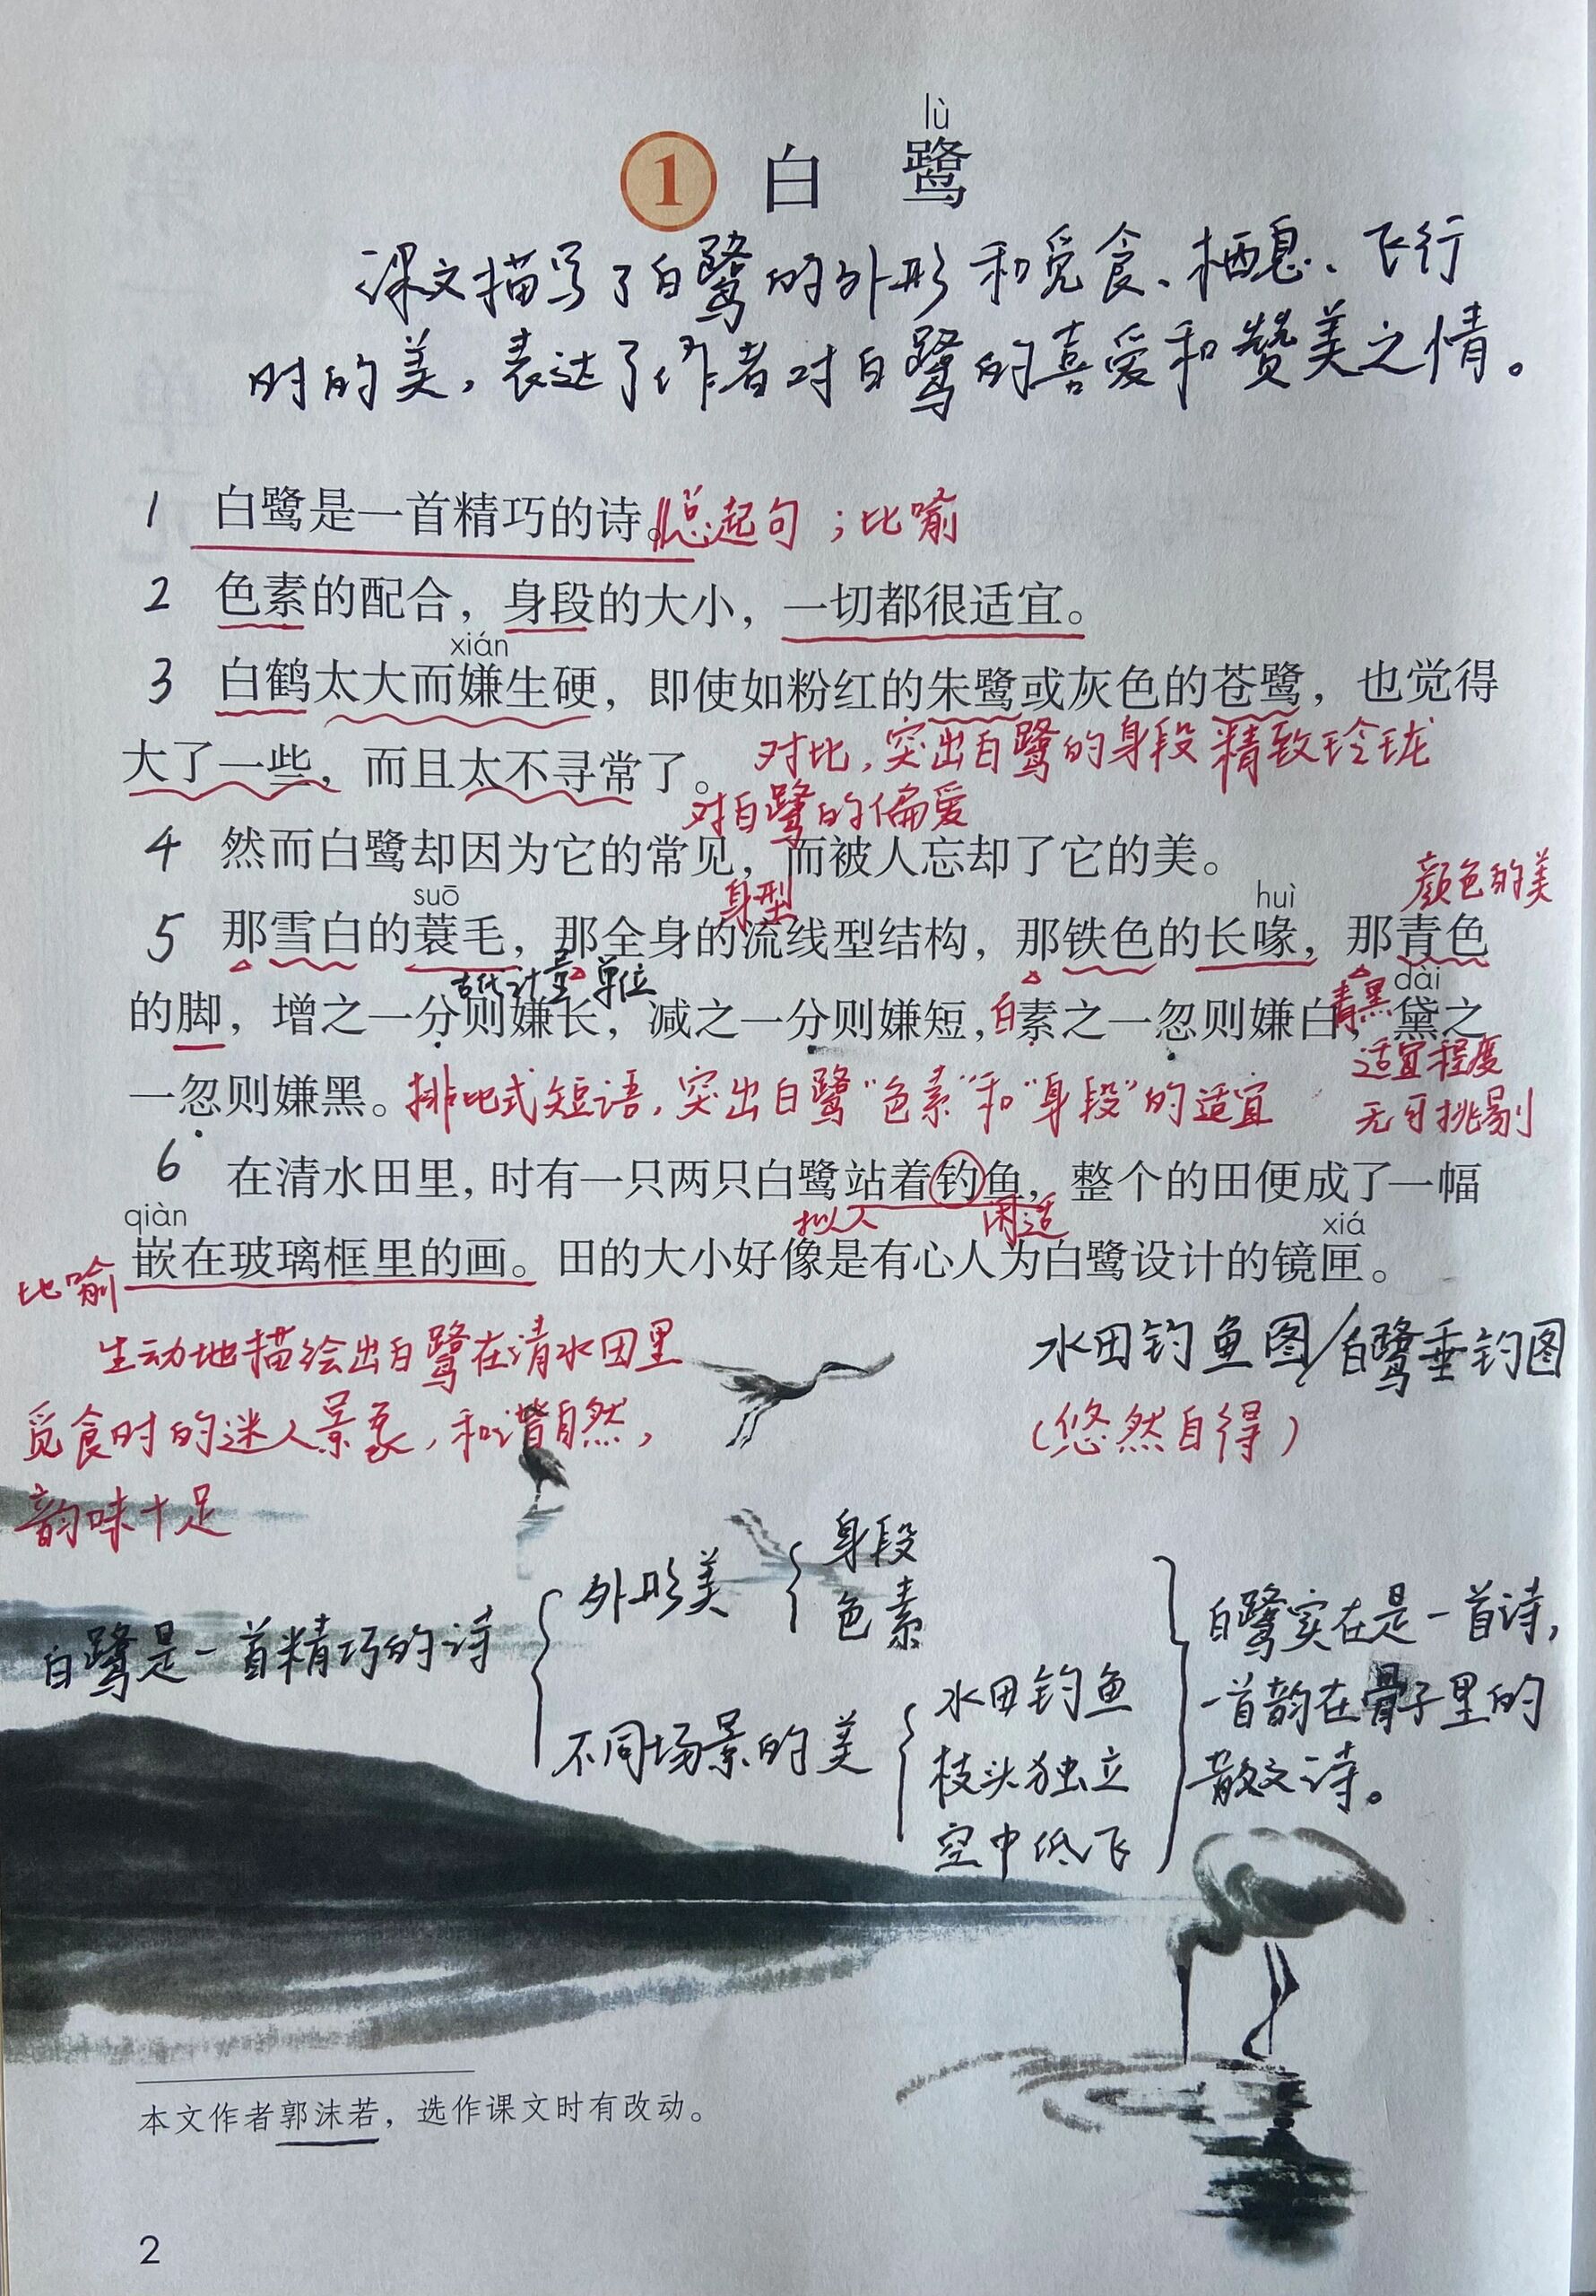 lù
1 白 鹭
课文描写了白鹭的外形和觅食、栖息、飞行
时的美，表达了作者对白鹭的喜爱和赞美之情。
1 白鹭是一首精巧的诗。总起句；比喻
2 色素的配合，身段的大小，一切都很适宜。
xián
3 白鹤太大而嫌生硬，即使如粉红的朱鹭或灰色的苍鹭，也觉得
大了一些，而且太不寻常了。对比，突出白鹭的身段精致玲珑
对白鹭的偏爱
4 然而白鹭却因为它的常见，而被人忘却了它的美。
颜色的美
suō 身型 huì
5 那雪白的蓑毛，那全身的流线型结构，那铁色的长喙，那青色
古代计量单位 青黑 dài
的脚，增之一分则嫌长，减之一分则嫌短，白素之一忽则嫌白，黛之
适宜程度
一忽则嫌黑。排比式短语，突出白鹭“色素”和“身段”的适宜
无可挑剔
6 在清水田里，时有一只两只白鹭站着钓鱼，整个的田便成了一幅
qiàn 拟人 闲适 xiá
比喻 嵌在玻璃框里的画。田的大小好像是有心人为白鹭设计的镜匣。
生动地描绘出白鹭在清水田里
觅食时的迷人景象，和谐自然，
韵味十足
水田钓鱼图/白鹭垂钓图
（悠然自得）
白鹭是一首精巧的诗
外形美
身段
色素
不同场景的美
水田钓鱼
枝头独立
空中低飞
白鹭实在是一首诗，
一首韵在骨子里的
散文诗。
本文作者郭沫若，选作课文时有改动。
2